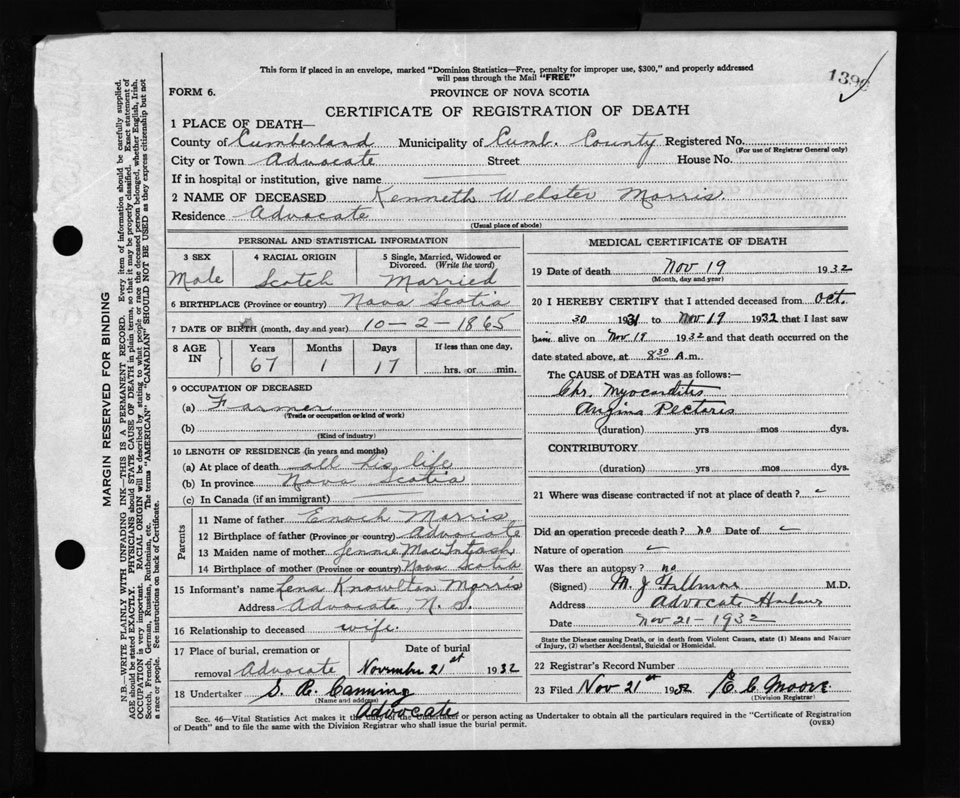 This form if placed in an envelope, marked "Dominion Statistics—Free, penalty for improper use, $300," and properly addressed
will pass through the Mail "FREE"
139
FORM 6.
PROVINCE OF NOVA SCOTIA
CERTIFICATE OF REGISTRATION OF DEATH
1 PLACE OF DEATH—
County of Cumberland Municipality of Cumb. County Registered No.
(For use of Registrar General only)
City or Town Advocate Street House No.
If in hospital or institution, give name
2 NAME OF DECEASED Kenneth Webster Morris.
Residence Advocate
(Usual place of abode)
PERSONAL AND STATISTICAL INFORMATION
3 SEX 4 RACIAL ORIGIN 5 Single, Married, Widowed or
Divorced. (Write the word)
Male Scotch Married
6 BIRTHPLACE (Province or country) Nova Scotia
7 DATE OF BIRTH (month, day and year) 10-2-1865
8 AGE IN Years Months Days If less than one day,
67 1 17 hrs. or min.
9 OCCUPATION OF DECEASED
(a) Farmer
(Trade or occupation or kind of work)
(b)
(Kind of industry)
10 LENGTH OF RESIDENCE (in years and months)
(a) At place of death all his life
(b) In province Nova Scotia
(c) In Canada (if an immigrant)
Parents
11 Name of father Enoch Morris
12 Birthplace of father (Province or country) Advocate
13 Maiden name of mother Jennie MacIntosh
14 Birthplace of mother (Province or country) Nova Scotia
15 Informant's name Lena Knowlton Morris
Address Advocate, N. S.
16 Relationship to deceased wife.
17 Place of burial, cremation or removal Advocate
Date of burial
November 21st 1932
18 Undertaker S. R. Canning
(Name and address)
Advocate
MEDICAL CERTIFICATE OF DEATH
19 Date of death Nov 19 1932
(Month, day and year)
20 I HEREBY CERTIFY that I attended deceased from Oct.
30 1931 to Nov 19 1932 that I last saw
him alive on Nov 19 1932 and that death occurred on the
date stated above, at 8 30 A.m.
The CAUSE of DEATH was as follows:—
Chr. Myocarditis
Angina Pectoris
(duration) yrs mos dys.
CONTRIBUTORY
(duration) yrs mos dys.
21 Where was disease contracted if not at place of death?
Did an operation precede death? no Date of
Nature of operation
Was there an autopsy? no
(Signed) M. J. Fillmore M.D.
Address Advocate Harbour
Date Nov 21-1932
State the Disease causing Death, or in death from Violent Causes, state (1) Means and Nature
of Injury, (2) whether Accidental, Suicidal or Homicidal.
22 Registrar's Record Number
23 Filed Nov 21st 1932 E. C. Moore
(Division Registrar)
Sec. 46—Vital Statistics Act makes it the duty of the Undertaker or person acting as Undertaker to obtain all the particulars required in the "Certificate of Registration
of Death" and to file the same with the Division Registrar who shall issue the burial permit.
(OVER)
MARGIN RESERVED FOR BINDING
N.B.—WRITE PLAINLY WITH UNFADING INK—THIS IS A PERMANENT RECORD. Every item of information should be carefully supplied.
AGE should be stated EXACTLY. PHYSICIANS should STATE CAUSE OF DEATH in plain terms, so that it may be properly classified. Exact statement of
OCCUPATION is very important. RACIAL ORIGIN will be described by stating to what people or race the deceased person belonged, whether English, Irish,
Scotch, French, German, Russian, Ruthenian, etc. The terms "AMERICAN" or "CANADIAN" SHOULD NOT BE USED as they express citizenship but not
a race or people. See instructions on back of Certificate.